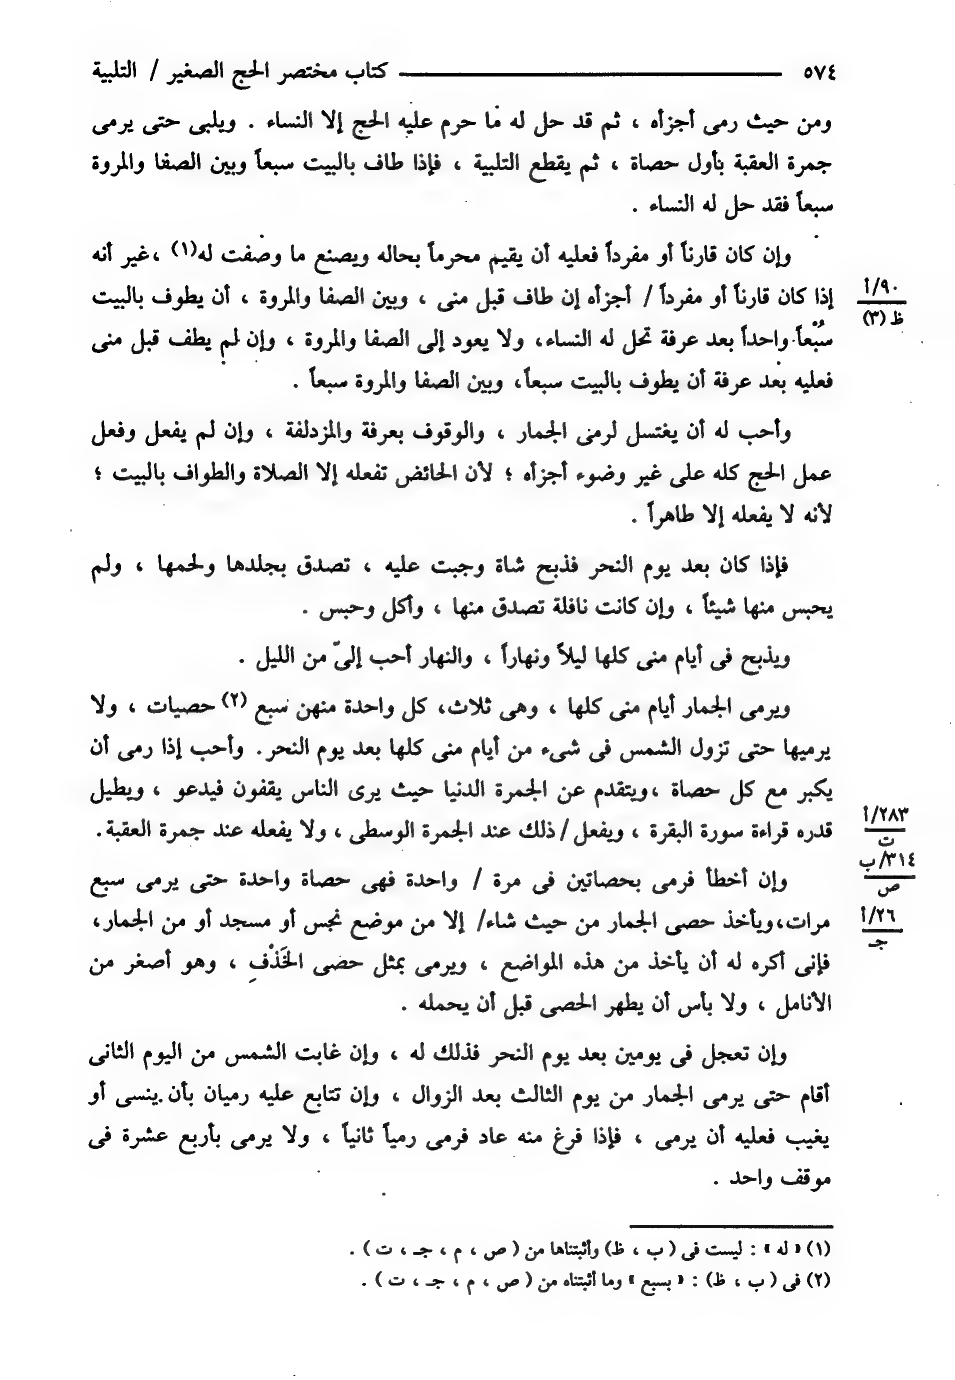 ٥٧٤ ــــــــــــــــــــ كتاب مختصر الحج الصغير / التلبية
ومن حيث رمى أجزأه ، ثم قد حل له ما حرم عليه الحج إلا النساء . ويلبى حتى يرمى
جمرة العقبة بأول حصاة ، ثم يقطع التلبية ، فإذا طاف بالبيت سبعاً وبين الصفا والمروة
سبعاً فقد حل له النساء .
وإن كان قارناً أو مفرداً فعليه أن يقيم محرماً بحاله ويصنع ما وصفت له(١) ،غير أنه
إذا كان قارناً أو مفرداً / أجزأه إن طاف قبل منى ، وبين الصفا والمروة ، أن يطوف بالبيت
سُبْعاً واحداً بعد عرفة تحل له النساء، ولا يعود إلى الصفا والمروة ، وإن لم يطف قبل منى
فعليه بعد عرفة أن يطوف بالبيت سبعاً، وبين الصفا والمروة سبعاً .
وأحب له أن يغتسل لرمى الجمار ، والوقوف بعرفة والمزدلفة ، وإن لم يفعل وفعل
عمل الحج كله على غير وضوء أجزأه ؛ لأن الحائض تفعله إلا الصلاة والطواف بالبيت ؛
لأنه لا يفعله إلا طاهراً .
فإذا كان بعد يوم النحر فذبح شاة وجبت عليه ، تصدق بجلدها ولحمها ، ولم
يحبس منها شيئاً ، وإن كانت نافلة تصدق منها ، وأكل وحبس .
ويذبح فى أيام منى كلها ليلاً ونهاراً ، والنهار أحب إلىّ من الليل .
ويرمى الجمار أيام منى كلها ، وهى ثلاث، كل واحدة منهن سبع (٢) حصيات ، ولا
يرميها حتى تزول الشمس فى شىء من أيام منى كلها بعد يوم النحر. وأحب إذا رمى أن
يكبر مع كل حصاة ،ويتقدم عن الجمرة الدنيا حيث يرى الناس يقفون فيدعو ، ويطيل
قدره قراءة سورة البقرة ، ويفعل / ذلك عند الجمرة الوسطى ، ولا يفعله عند جمرة العقبة.
وإن أخطأ فرمى بحصاتين فى مرة / واحدة فهى حصاة واحدة حتى يرمى سبع
مرات،ويأخذ حصى الجمار من حيث شاء/ إلا من موضع نجس أو مسجد أو من الجمار،
فإنى أكره له أن يأخذ من هذه المواضع ، ويرمى بمثل حصى الخَذْفِ ، وهو أصغر من
الأنامل ، ولا بأس أن يطهر الحصى قبل أن يحمله .
وإن تعجل فى يومين بعد يوم النحر فذلك له ، وإن غابت الشمس من اليوم الثانى
أقام حتى يرمى الجمار من يوم الثالث بعد الزوال ، وإن تتابع عليه رميان بأن ينسى أو
يغيب فعليه أن يرمى ، فإذا فرغ منه عاد فرمى رمياً ثانياً ، ولا يرمى بأربع عشرة فى
موقف واحد .
٩٠/أ
ظ (٣)
٢٨٣/أ
ت
٣١٤/ب
ص
٢٦/أ
جـ
(١) « له » : ليست فى ( ب ، ظ) وأثبتناها من ( ص ، م ، جـ ، ت ) .
(٢) فى ( ب ، ظ) : « بسبع » وما أثبتناه من ( ص ، م ، جـ ، ت ) .